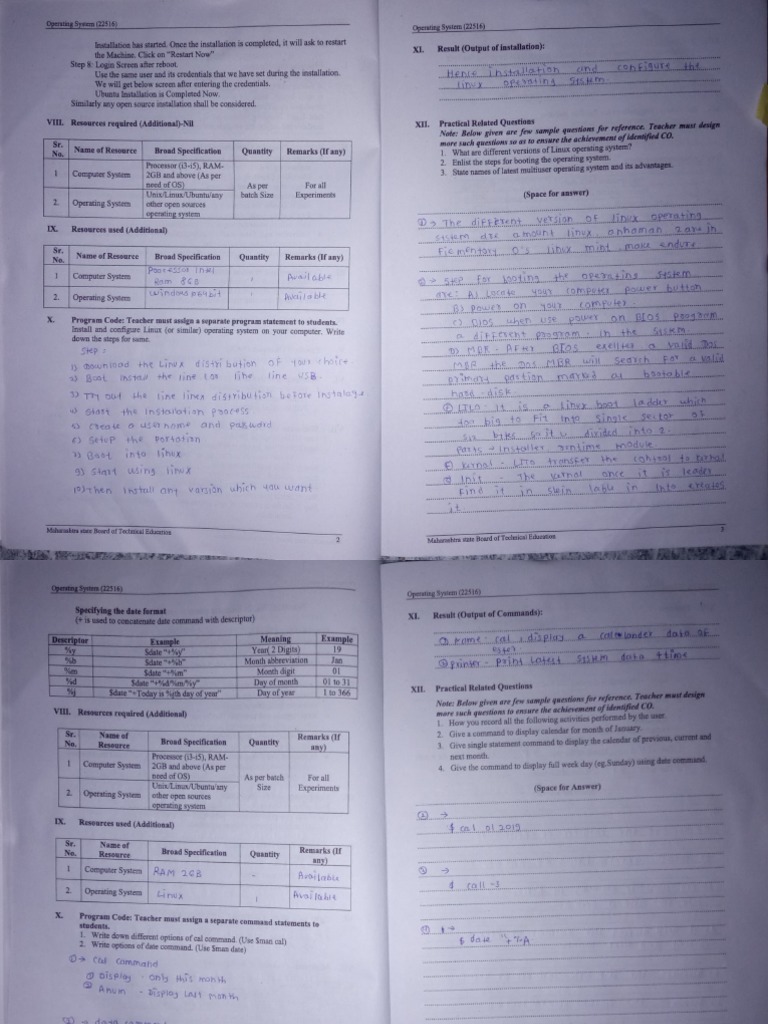 Operating System (22516)
Installation has started. Once the installation is completed, it will ask to restart
the Machine. Click on "Restart Now"
Step 8: Login Screen after reboot.
Use the same user and its credentials that we have set during the installation.
We will get below screen after entering the credentials.
Ubuntu Installation is Completed Now.
Similarly any open source installation shall be considered.
VIII. Resources required (Additional)-Nil
Sr. No. Name of Resource Broad Specification Quantity Remarks (If any)
1 Computer System Processor (i3-i5), RAM-2GB and above (As per need of OS) As per batch Size For all Experiments
2. Operating System Unix/Linux/Ubuntu/any other open sources operating system
IX. Resources used (Additional)
Sr. No. Name of Resource Broad Specification Quantity Remarks (If any)
1 Computer System Ram Available
2. Operating System Available
X. Program Code: Teacher must assign a separate program statement to students.
Install and configure Linux (or similar) operating system on your computer. Write
down the steps for same.
Step :
1) Download the Linux distribution of your choice.
2) Boot the line USB.
3) Try out the line distribution before
4) Start the process
5) create a username and password
6) Setup the
7) Boot into linux
9) Start using linux
10) Then install any version which you want
Maharashtra state Board of Technical Education
2
Operating System (22516)
XI. Result (Output of installation):
Hence installation and configure the
linux operating system
XII. Practical Related Questions
Note: Below given are few sample questions for reference. Teacher must design
more such questions so as to ensure the achievement of identified CO.
1. What are different versions of Linux operating system?
2. Enlist the steps for booting the operating system.
3. State names of latest multiuser operating system and its advantages.
(Space for answer)
The different version of linux operating
system are linux, in
linux mint, make
Step for booting the operating system
are: A) Locate your computer power button
B) Power on your computer.
C) BIOS when use power on BIOS program.
a different program. in the system.
After BIOS a valid Dos
MBR the Dos MBR will search for a valid
primary partion marked as bootable
hard-disk
it is a linux boot which
too big to fit into single sector of
divided into 2.
Parts - Installer runtime module
transfer the control to
Init - The once it is
Find it in in into creates
it.
Maharashtra state Board of Technical Education
3
Operating System (22516)
Specifying the date format
(+ is used to concatenate date command with descriptor)
Descriptor Example Meaning Example
%y $date "+%y" Year( 2 Digits) 19
%b $date "+%b" Month abbreviation Jan
%m $date "+%m" Month digit 01
%d $date "+%d%m/%y" Day of month 01 to 31
%j $date "+Today is %jth day of year" Day of year 1 to 366
VIII. Resources required (Additional)
Sr. No. Name of Resource Broad Specification Quantity Remarks (If any)
1 Computer System Processor (i3-i5), RAM-2GB and above (As per need of OS) As per batch Size For all Experiments
2. Operating System Unix/Linux/Ubuntu/any other open sources operating system
IX. Resources used (Additional)
Sr. No. Name of Resource Broad Specification Quantity Remarks (If any)
1 Computer System RAM 2GB - Available
2. Operating System Linux 1 Available
X. Program Code: Teacher must assign a separate command statements to
students.
1. Write down different options of cal command. (Use $man cal)
2. Write options of date command. (Use $man date)
① → Cal command
① Display - only this month
② Anum - Display last month
Operating System (22516)
XI. Result (Output of Commands):
cal , display a data of
② printer - print latest system data + time
XII. Practical Related Questions
Note: Below given are few sample questions for reference. Teacher must design
more such questions to ensure the achievement of identified CO.
1. How you record all the following activities performed by the user.
2. Give a command to display calendar for month of January.
3. Give single statement command to display the calendar of previous, current and
next month.
4. Give the command to display full week day (eg.Sunday) using date command.
(Space for Answer)
② →
$ cal 01 2019
③ →
$ call -3
④ →
$ date "+%A